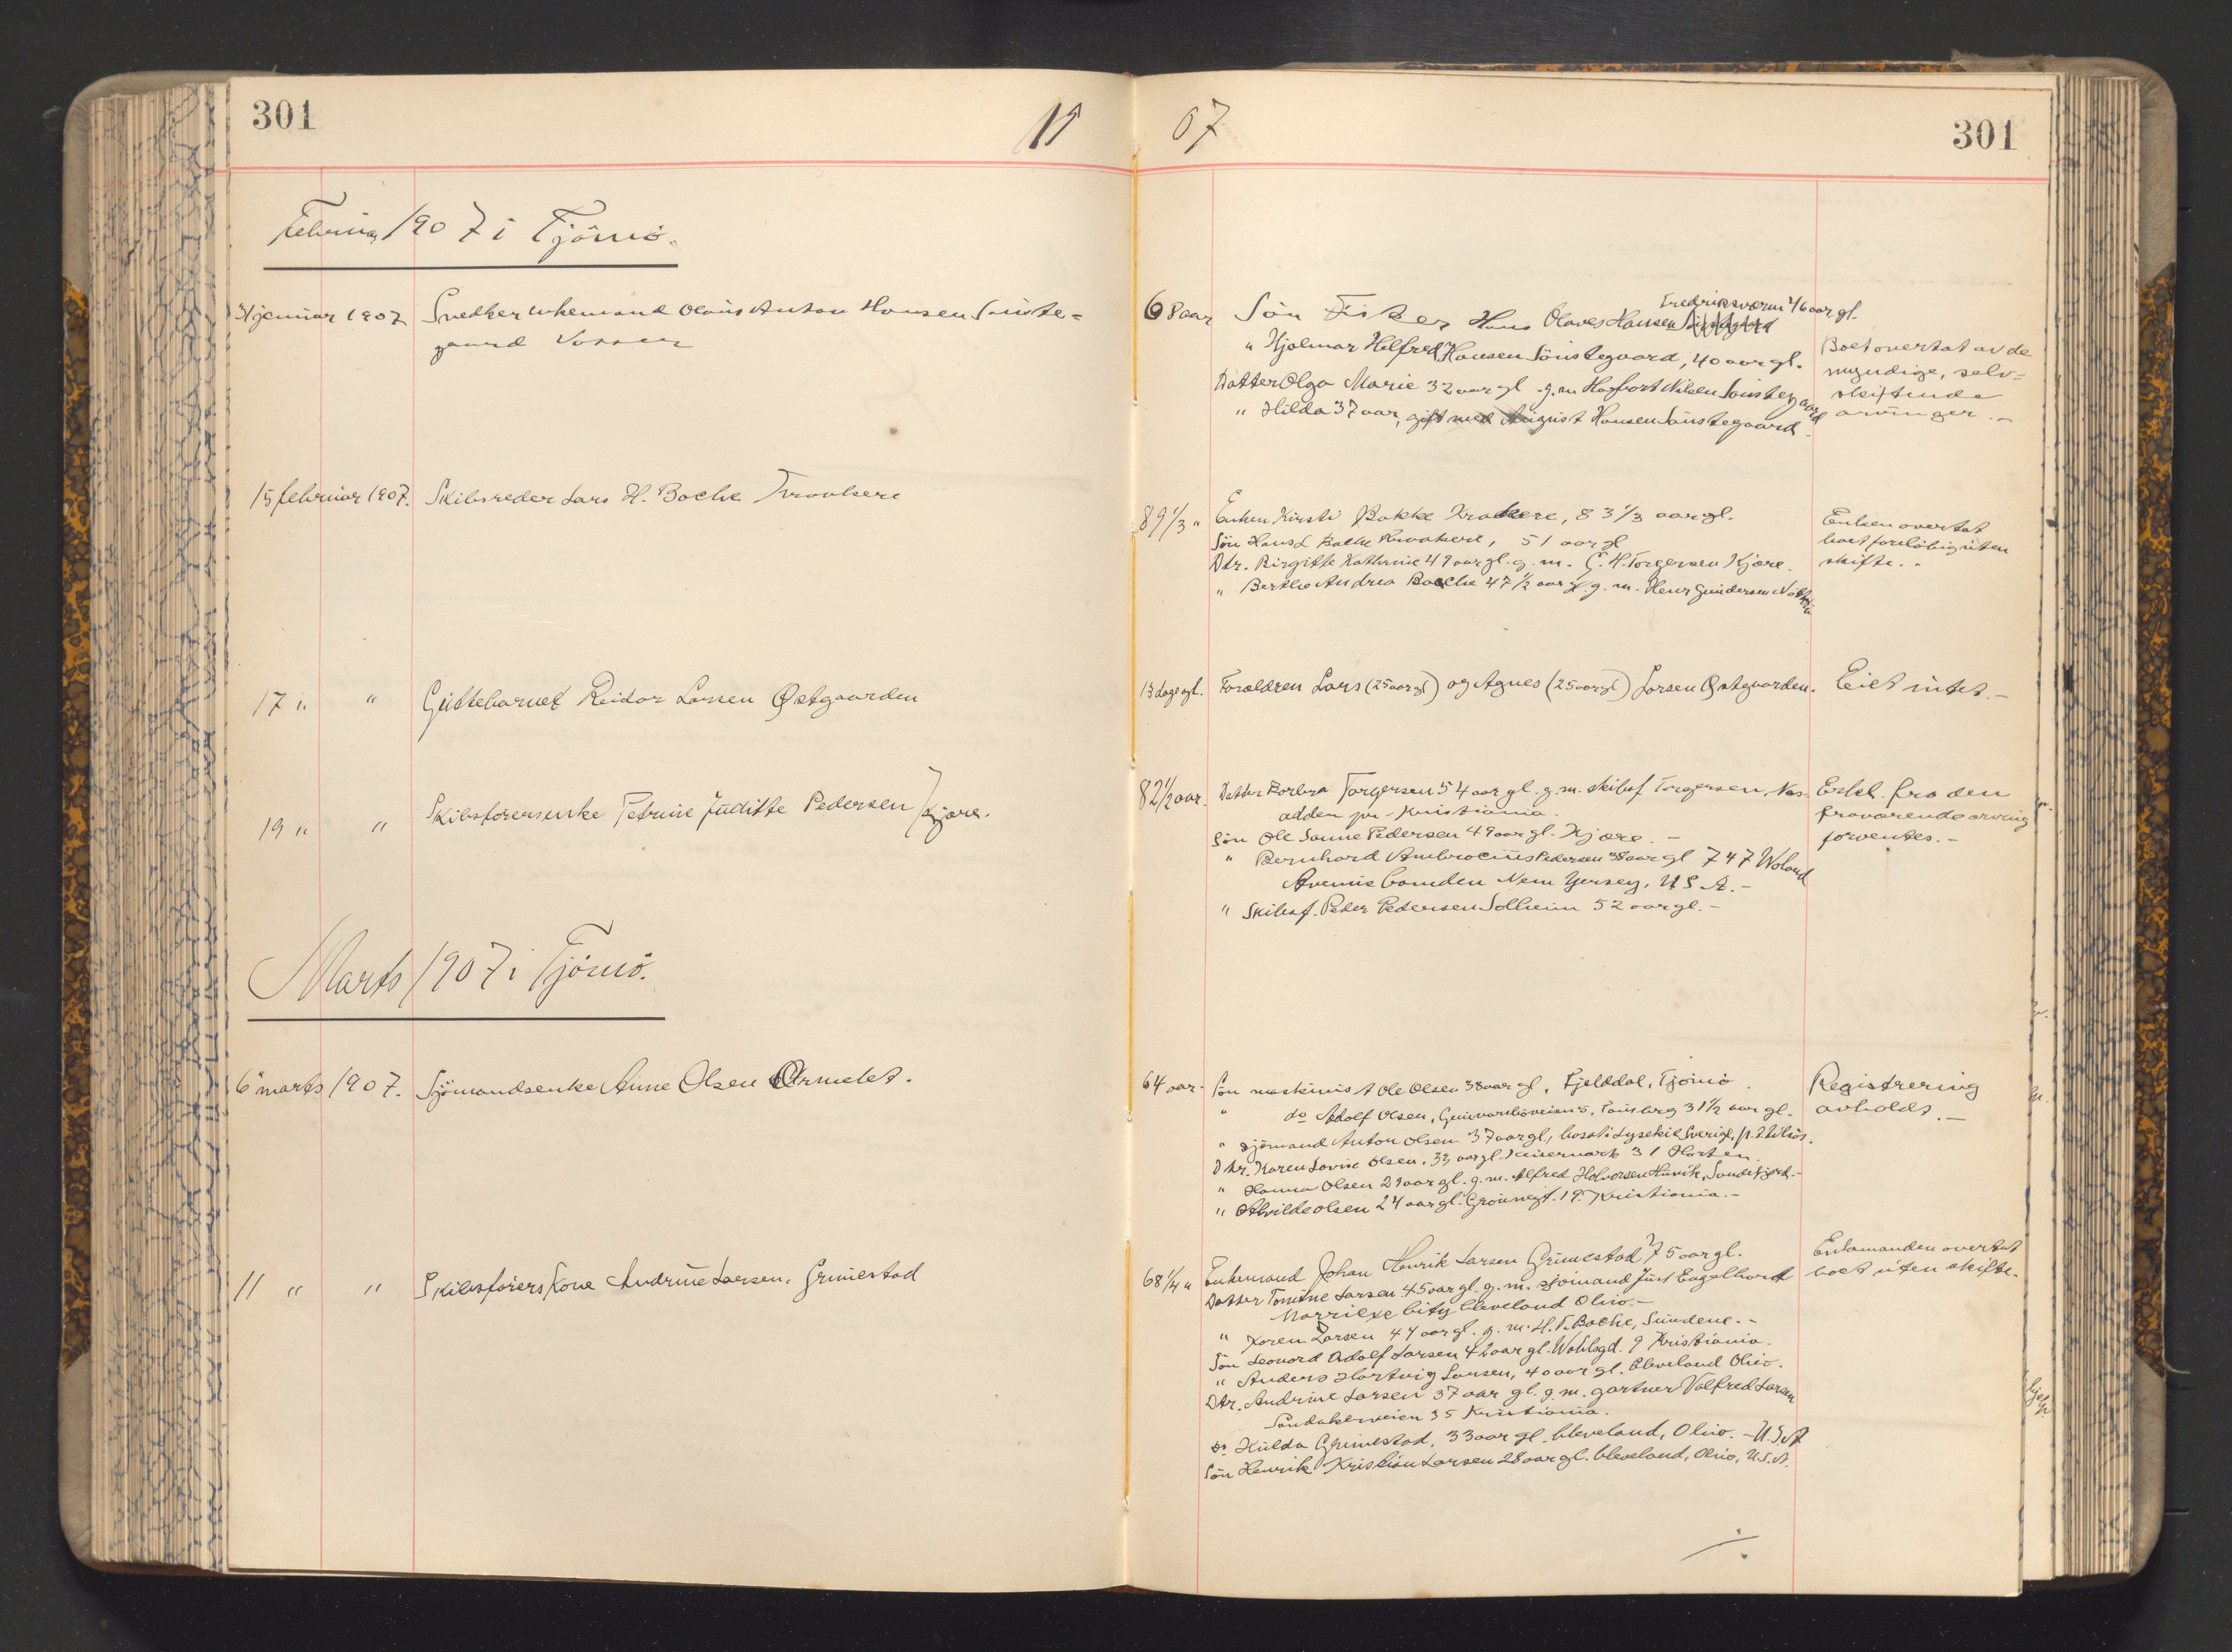 301
19
07
301
Februar 1907 i Tjömö.
31 januar 1907 Snedker enkemand Olaus Anton Hansen Sönste=
gaard
68 aar Sön Fisker Hans Olaves Hansen Fredriksværn 46 aar gl.
" Hjalmar Helfred Hansen Sönstegaard, 40 aar gl.
Datter Olga Marie 32 aar gl. g.m. Hagbart Nilsen Sönstegaard
" Hilda 37 aar, gift med August Hansen Sönstegaard.
Boet overtat av de
myndige, selv=
skiftende
arvinger.-
15 februar 1907. Skibsreder Lars H. Bache Kraakere
89 1/3 " Enken Kirsti Bakke Kraakere, 83 1/3 aar gl.
Sön Hans L Bache Kraakere, 51 aar gl
Dtr. Birgitte Kathrine 49 aar gl. g.m. C. H. Torgersen Kjære.
" Berthe Andrea Bache 47 1/2 aar gl. g.m. Henr Gundersen
Enken overtat
boet foreløbig uten
skifte.-
17 " " Guttebarnet Reidar Larsen Østgaarden
13 dage gl. Forældren Lars (25 aar gl) og Agnes (25 aar gl) Larsen Østgaarden.
Eiet intet.-
19 " " Skibsförerenke Petrine Juditte Pedersen Kjære.
82 1/2 aar. Datter Barbra Torgersen 54 aar gl. g.m. skibsf Torgersen, Næs-
odden pr. Kristiania.
Sön Ole Sanne Pedersen 49 aar gl. Kjære.-
" Bernhard Ambrocius Pedersen 38 aar gl 747 Woland
Avenue Camden New Yersey, U S A.-
" Skibsf. Peder Pedersen Solheim 52 aar gl.-
Erkl. fra den
fraværende arving
forventes.-
Marts 1907 i Tjömö.
6 marts 1907. Sjömandsenke Anne Olsen Ormelet.
64 aar. Sön maskinist Ole Olsen 38 aar gl, Fjelddal, Tjömö.
" do Adolf Olsen, Gunnarsböveien 5, Tönsberg 31 1/2 aar gl.
" sjömand Anton Olsen 37 aar gl, bosat i Lysekil Sverige,
Dtr. Karen Lovise Olsen, 33 aar gl. Keisermark 31 Horten
" Hanna Olsen 29 aar gl. g.m. Alfred Halvorsen Huvik, Sandefjord.-
" Alvilde Olsen 24 aar gl. Grönnegt. 19. Kristiania.-
Registrering
avholdt.-
11 " " Skibsförers Kone Andrine Larsen, Grimestad
68 1/4 " Enkemand Johan Henrik Larsen Grimestad 75 aar gl.
Datter Tomine Larsen 45 aar gl. g.m. sjömand Just Engelhardt
City Cleveland Ohio.-
" Karen Larsen 44 aar gl. g.m. H. F. Bache, Sundene.-
Sön Leonard Adolf Larsen 42 aar gl. 9 Kristiania.
" Anders Hartvig Larsen, 40 aar gl. Cleveland Ohio.
Dtr. Andrine Larsen 37 aar gl. g.m. gartner Valfred Larsen
Sandakerveien 35 Kristiania.
Do Hulda Grimestad, 33 aar gl. Cleveland, Ohio.- U.S.A
Sön Henrik Kristian Larsen 28 aar gl. Cleveland, Ohio, U.S.A.
Enkemanden overtat
boet uten skifte.